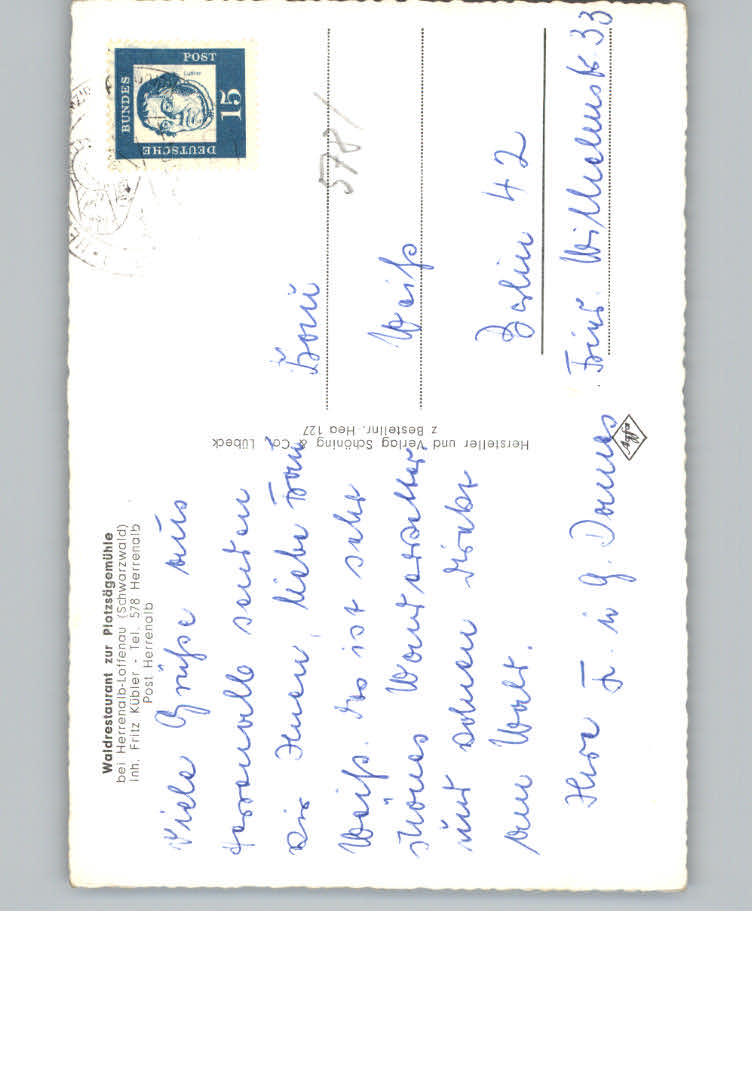 Waldrestaurant zur Plotzsägemühle
bei Herrenalb-Loffenau (Schwarzwald)
Inh. Fritz Kübler - Tel. 578 Herrenalb
Post Herrenalb
Viele Grüße aus
Herrenalb senden
wir Ihnen, liebe Frau
Weiß. Es ist sehr
schönes Wanderwetter
und wohnen direkt
am Wald.
Ihre F. u G. Danes
Hersteller und Verlag Schöning & Co, Lübeck
z Bestellnr. Hea 127
DEUTSCHE BUNDES POST
15
Luther
578/
Frau
Weiß
Berlin 42
Fried. Wilhelmstr 33
agfa